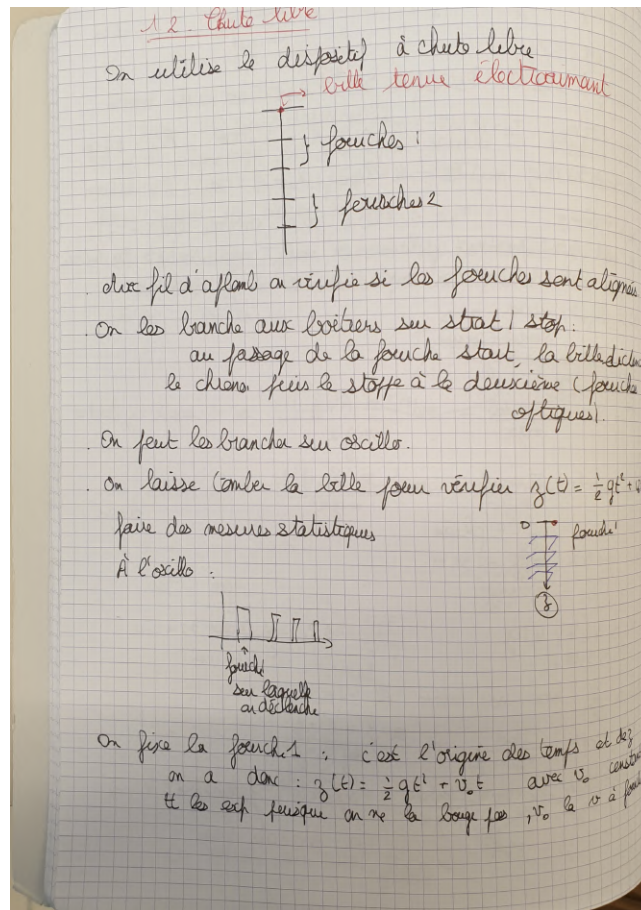 1.2. Chute libre
On utilise le dispositif à chute libre
bille tenue électroaimant
} fourches 1
} fourches 2
. Avec fil d'aplomb on vérifie si les fourches sont alignées
. On les branche aux boîtiers sur strat / stop :
au passage de la fourche start, la bille déclen
le chrono puis le stoppe à la deuxième (fourche
optiques).
. On peut les brancher sur oscillo.
. On laisse tomber la bille pour vérifier z(t) = ½gt² + v
faire des mesures statistiques
0
fourche 1
À l'oscillo :
z
fourche
sur laquelle
on déclenche
On fixe la fourche 1 : c'est l'origine des temps et de z
on a donc : z(t) = ½ gt² + v₀t avec v₀ constan
tt les exp puisque on ne la bouge pas, v₀ la v à four